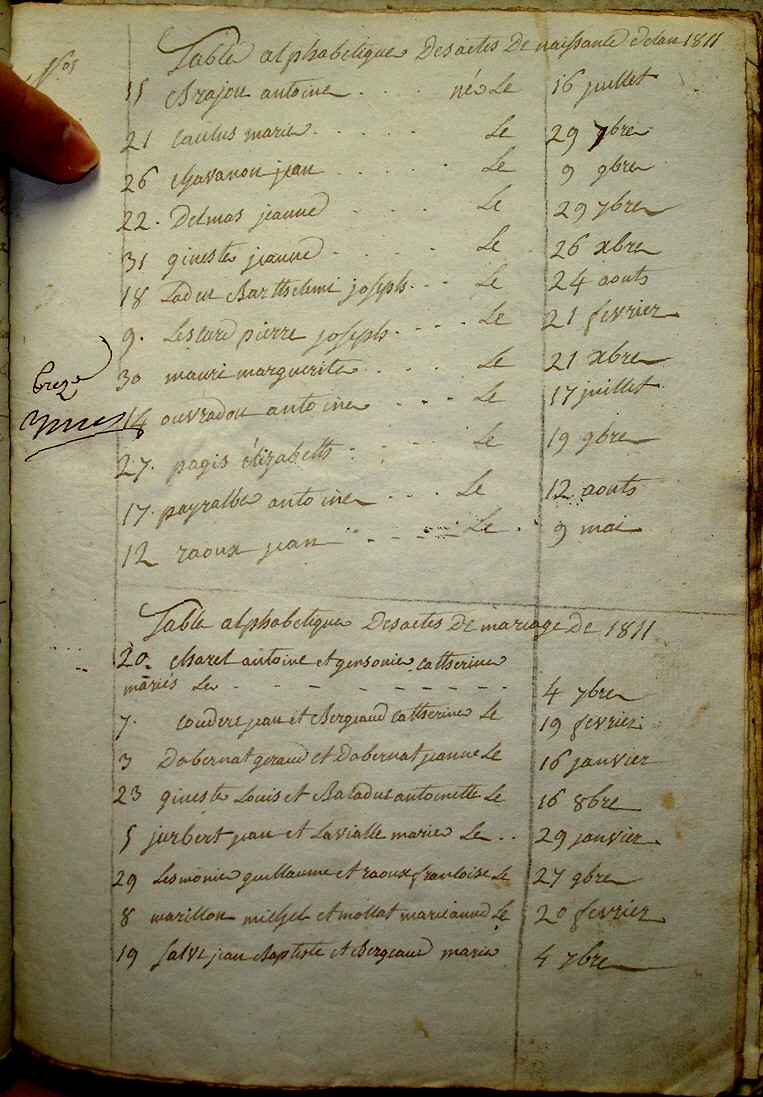 Nos
Table alphabetique Des actes De naissance De lan 1811
15 Brajou antoine . . . . né Le 16 juillet
21 caulus marie . . . . . Le 29 7bre
26 chavanon jean . . . . Le 9 9bre
22. Delmas jeanne . . . . Le 29 7bre
31 gineste jeanne . . . . Le 26 xbre
18 Ladue Barthelemi joseph . . . Le 24 aouts
9. Lescure pierre joseph . . . . Le 21 fevrier
30 mauri marguerite . . . . Le 21 xbre
14 ouvradou antoine . . . Le 17 juillet
27. pagis élizabeth . . . . Le 19 9bre
17. payralbe antoine . . . Le 12 aouts
12 raoux jean . . . . Le . 9 mai
Table alphabetique Des actes De mariage De 1811
20. charel antoine et gensonie catherine
mariés Le - - - - - - - - 4 7bre
7. couderc jean et Bergeaud catherine Le 19 fevrier
3 Dabernat geraud et Dabernat jeanne Le 16 janvier
23 gineste Louis et Baladue antoinette Le 16 8bre
5 jurbert jean et Lavialle marie Le . . 29 janvier
29 Lesmonie guillaume et raoux francoise Le 27 9bre
8 marillou michel et mollat marieanne Le 20 fevrier
19 salvi jean Baptiste et Bergeaud marie 4 7bre